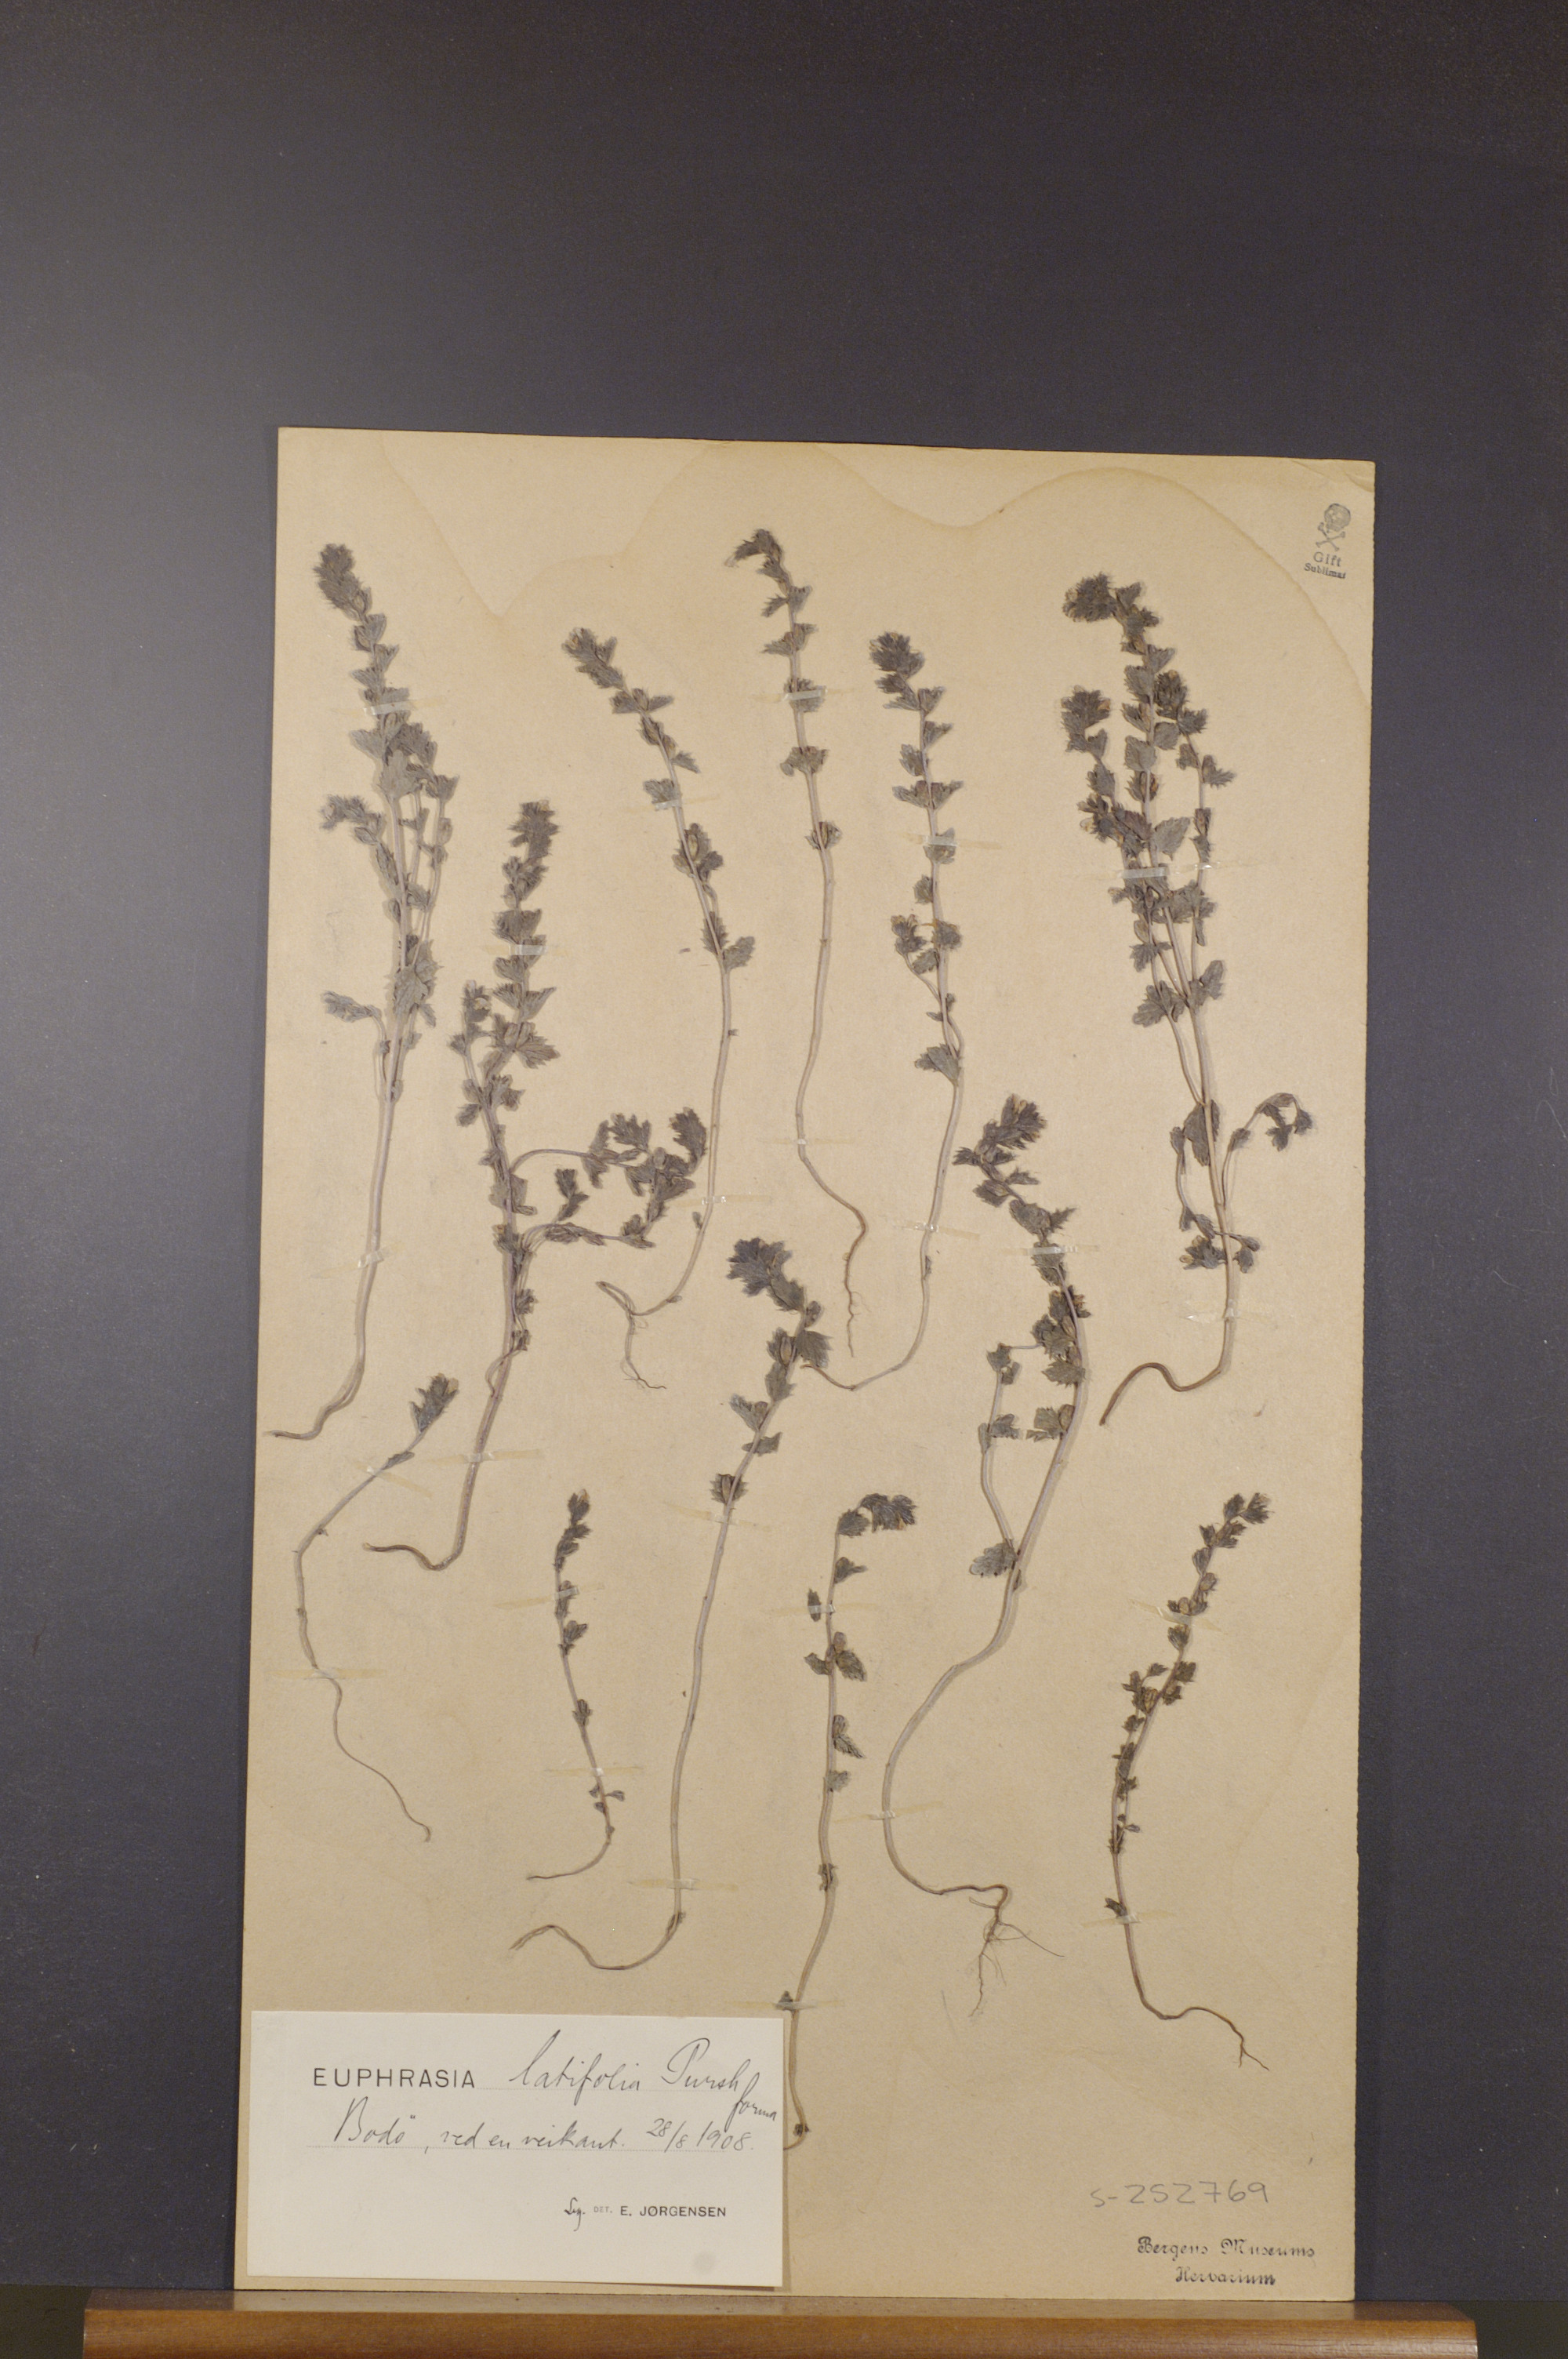 Gift
Sublimat
EUPHRASIA latifolia Pursh
forma
Bodö, ved en veikant. 28/8 1908.
Leg. DET. E. JØRGENSEN
S-252769
Bergens Museums
Herbarium